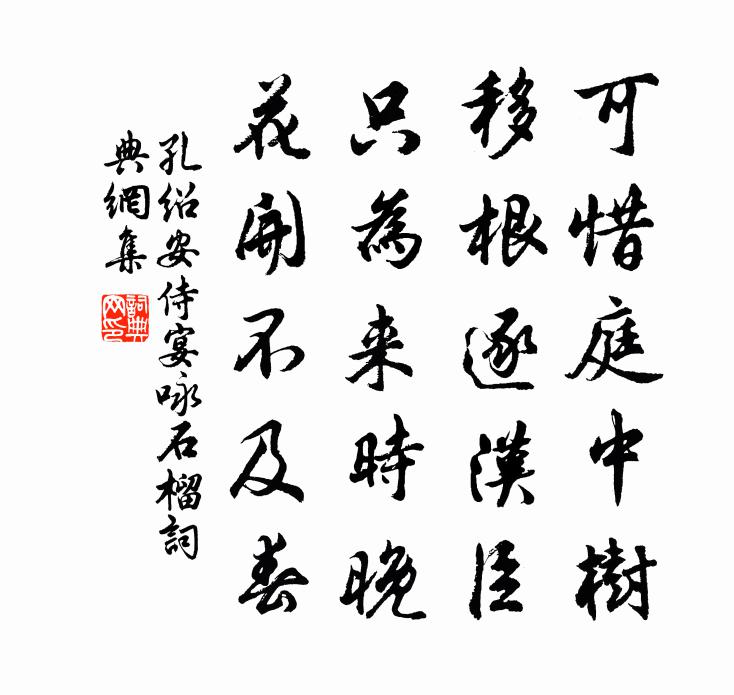 可惜庭中樹
移根逐漢臣
只為来時晚
花開不及春
孔紹安侍宴咏石榴詞
典網集
詞典
网印